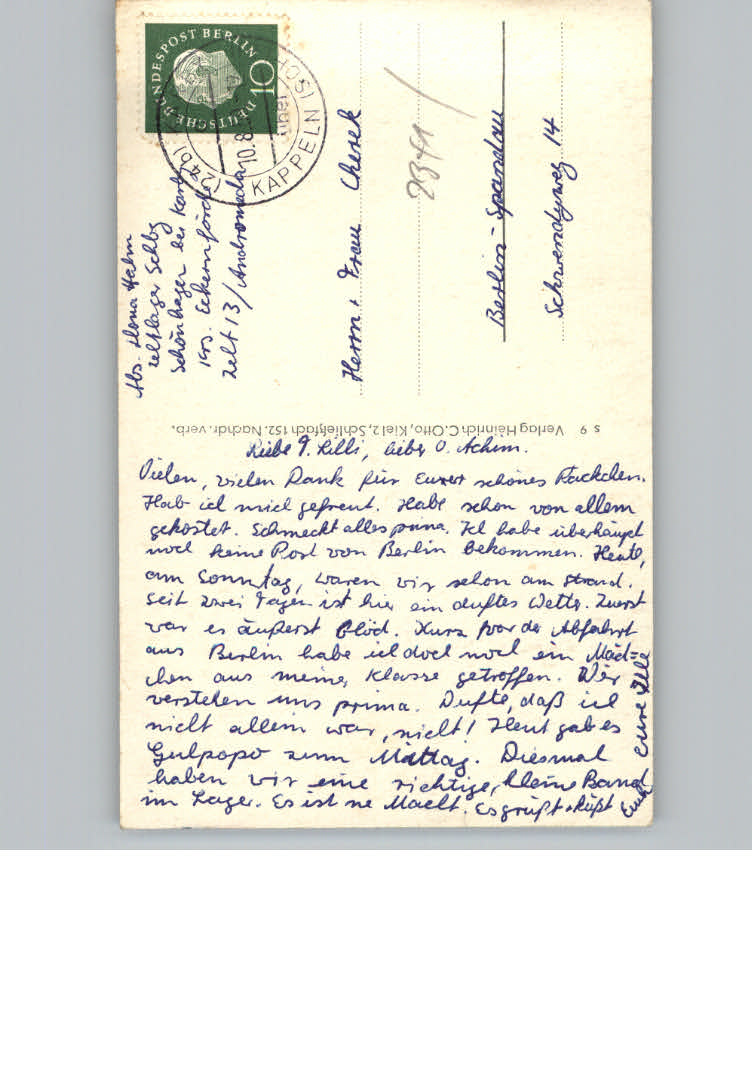 DEUTSCHE BUNDESPOST BERLIN
10
(24b)
KAPPELN
10.8.
Abs. Ilona Hahm
Zeltlager Selbg
Schönhagen bei Kappeln
Krs. Eckernförde
Zelt 13/Andromeda
Herrn + Frau Cherek
2341
Berlin-Spandau
Schwendyweg 14
s 9 Verlag Heinrich C. Otto, Kiel 2, Schließfach 152. Nachdr. verb.
Liebe T. Lilli, lieber O. Achim.
Vielen, vielen Dank für Euer schönes Päckchen.
Hab ich mich gefreut. Habe schon von allem
gekostet. Schmeckt alles prima. Ich habe überhaupt
noch keine Post von Berlin bekommen. Heute,
am Sonntag, waren wir schon am Strand.
Seit zwei Tagen ist hier ein duftes Wetter. Zuerst
war es äußerst blöd. Kurz vor der Abfahrt
aus Berlin habe ich doch noch ein Mäd=
chen aus meiner Klasse getroffen. Wir
verstehen uns prima. Dufte, daß ich
nicht allein war, nicht! Heut gab es
zum Mittag. Diesmal
haben wir eine richtige, kleine Band
im Lager. Es ist ne Macht. Es grüßt + küßt
Euch Eure